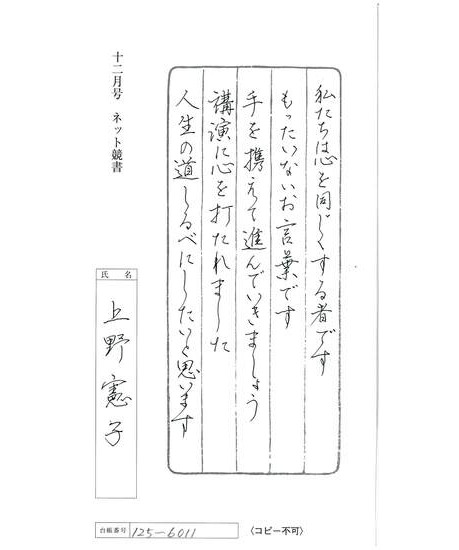 私たちは心を同じくする者です
もったいないお言葉です
手を携えて進んでいきましょう
講演に心を打たれました
人生の道しるべにしたいと思います
十二月号 ネット競書
氏名
上野憲子
台帳番号 125-6011
〈コピー不可〉